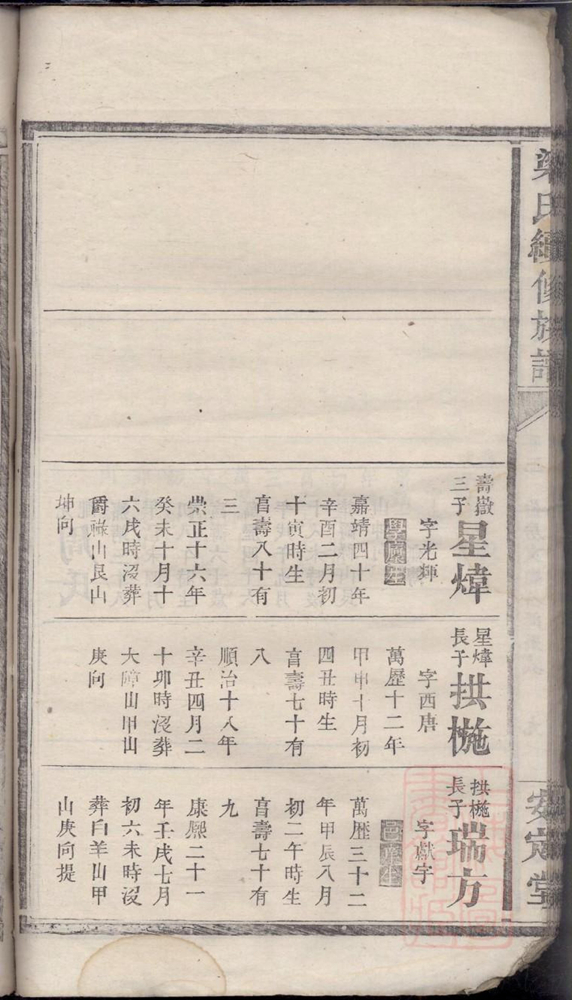 梁氏續修族譜
安定堂
壽嶽
三子
星煒
字光輝
嘉靖四十年
辛酉二月初
十寅時生
享壽八十有
三
崇正十六年
癸未十月十
六戌時沒葬
爵祿山艮山
坤向
星煒
長子
拱樾
字西唐
萬歷十二年
甲申十月初
四丑時生
享壽七十有
八
順治十八年
辛丑四月二
十卯時沒葬
大障山甲山
庚向
長子
瑞方
字獻字
邑庠生
萬歷三十二
年甲辰八月
初二午時生
享壽七十有
九
康熙二十一
年壬戌七月
初六未時沒
葬白羊山甲
山庚向提